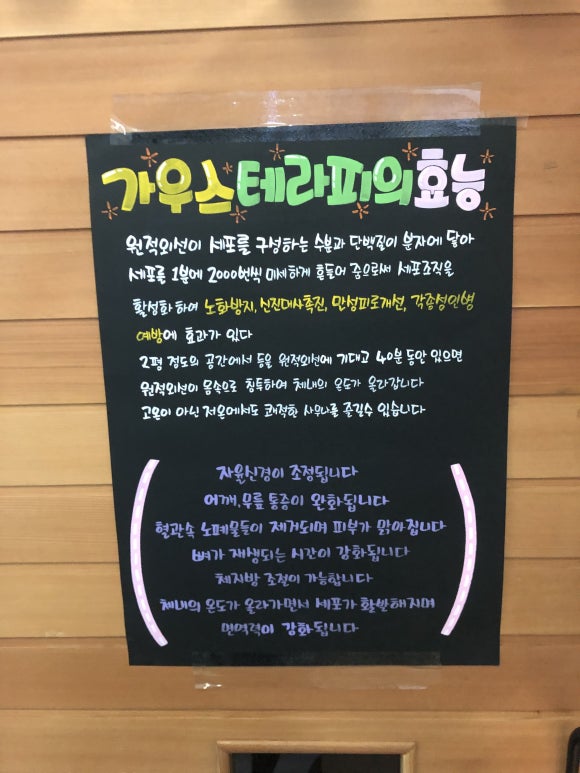 가우스테라피의효능
원적외선이 세포를 구성하는 수분과 단백질이 분자에 닿아
세포를 1분에 2000번씩 미세하게 흔들어 줌으로써 세포조직을
활성화 하여 노화방지, 신진대사촉진, 만성피로개선, 각종성인병
예방에 효과가 있다
2평 정도의 공간에서 등을 원적외선에 기대고 40분 동안 있으면
원적외선이 몸속으로 침투하여 체내의 온도가 올라갑니다
고온이 아닌 저온에서도 쾌적한 사우나를 즐길수 있습니다
자율신경이 조정됩니다
어깨, 무릎 통증이 완화됩니다
혈관속 노폐물들이 제거되며 피부가 맑아집니다
뼈가 재생되는 시간이 강화됩니다
체지방 조절이 가능합니다
체내의 온도가 올라가면서 세포가 활발해지며
면역력이 강화됩니다